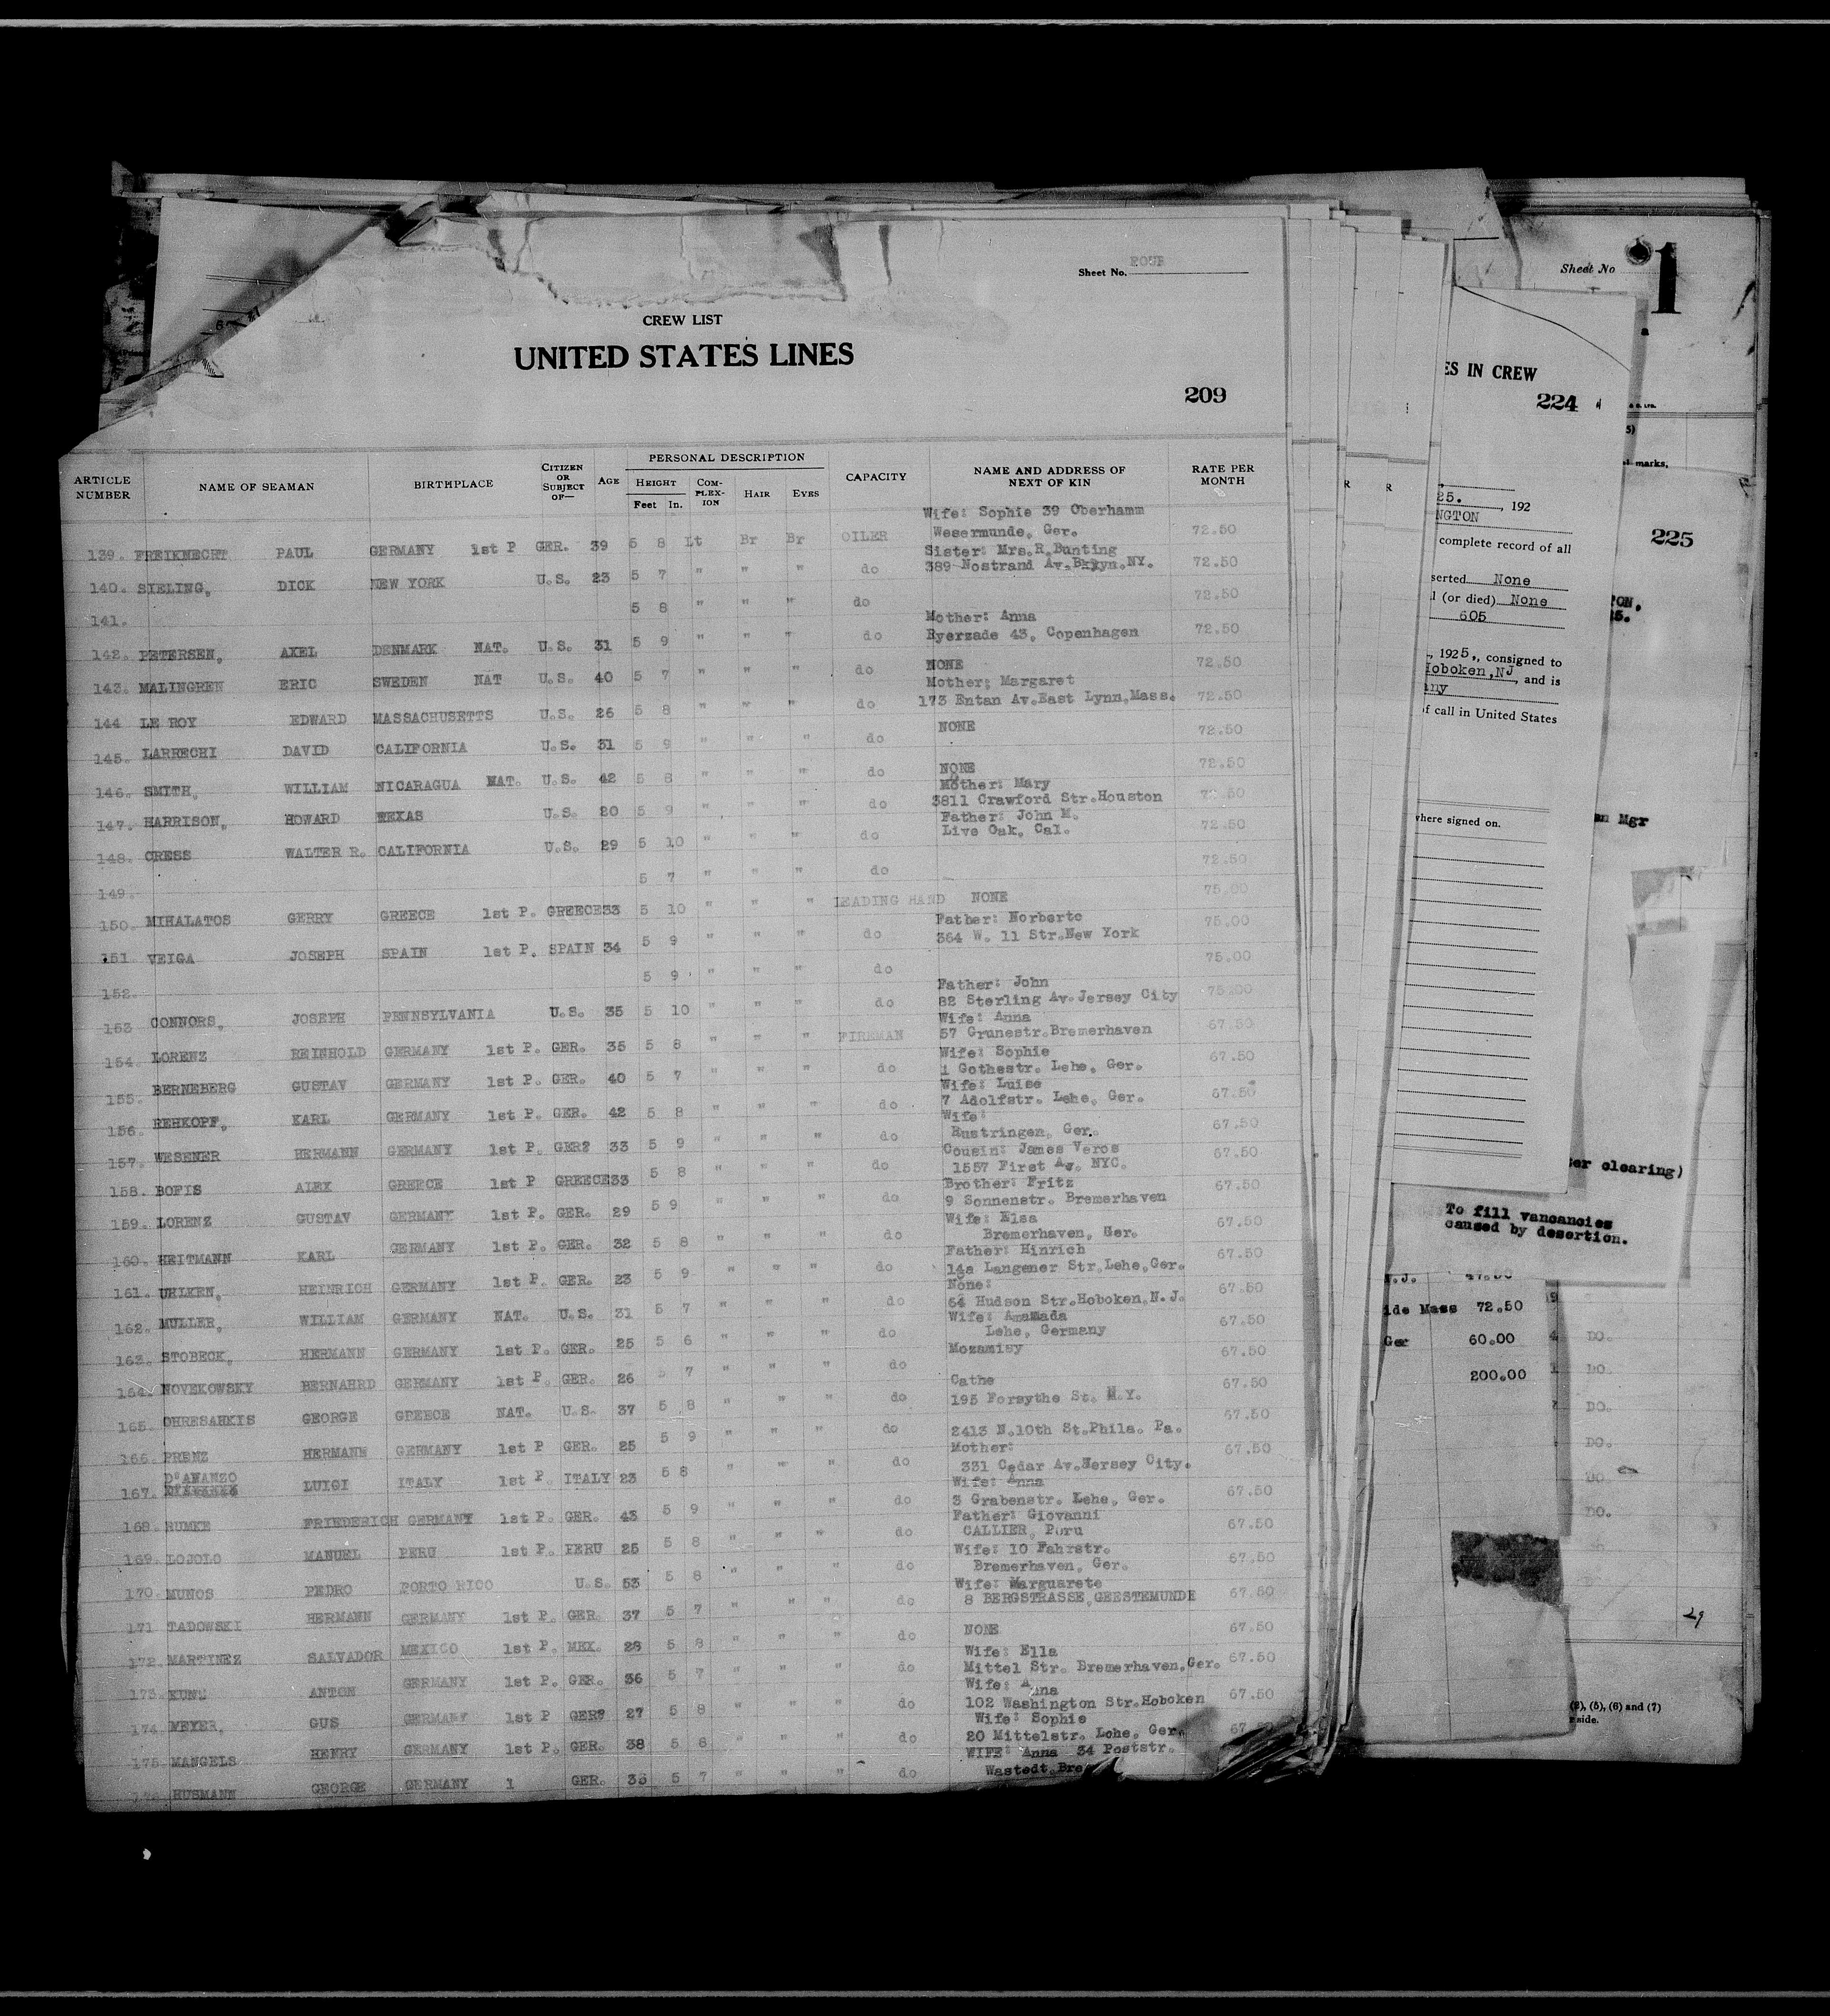 Sheet No. FOUR
CREW LIST
UNITED STATES LINES
209
ARTICLE NUMBER NAME OF SEAMAN BIRTHPLACE CITIZEN OR SUBJECT OF— AGE PERSONAL DESCRIPTION HEIGHT Feet In. COM-PLEX-ION HAIR EYES CAPACITY NAME AND ADDRESS OF NEXT OF KIN RATE PER MONTH
Wife: Sophie 39 Oberhamm
139. FREIKNECHT PAUL GERMANY 1st P GER. 39 5 8 Lt Br Br OILER Wesermunde, Ger. 72.50
Sister: Mrs.R.Bunting
140. SIELING, DICK NEW YORK U.S. 23 5 7 " " " do 389 Nostrand Av.Bklyn.NY. 72.50
141. 5 8 " " " do 72.50
Mother: Anna
142. PETERSEN, AXEL DENMARK NAT. U.S. 31 5 9 " " " do Ryerzade 43, Copenhagen 72.50
143. MALINGREN ERIC SWEDEN NAT U.S. 40 5 7 " " " do NONE 72.50
Mother: Margaret
144 LE ROY EDWARD MASSACHUSETTS U.S. 26 5 8 " " " do 173 Entan Av.East Lynn,Mass. 72.50
145. LARRECHI DAVID CALIFORNIA U.S. 31 5 9 " " " do NONE 72.50
146. SMITH, WILLIAM NICARAGUA NAT. U.S. 42 5 8 " " " do NONE 72.50
Mother: Mary
147. HARRISON, HOWARD TEXAS U.S. 20 5 9 " " " do 3811 Crawford Str.Houston 72.50
Father: John M.
148. CRESS WALTER R. CALIFORNIA U.S. 29 5 10 " " " do Live Oak, Cal. 72.50
149. 5 7 " " " do 72.50
150. MIHALATOS GERRY GREECE 1st P. GREECE 33 5 10 " " " LEADING HAND NONE 75.00
Father: Norberto
151 VEIGA JOSEPH SPAIN 1st P. SPAIN 34 5 9 " " " do 364 W. 11 Str.New York 75.00
152. 5 9 " " " do 75.00
Father: John
153 CONNORS, JOSEPH PENNSYLVANIA U.S. 35 5 10 " " " do 82 Sterling Av.Jersey City 75.00
Wife: Anna
154. LORENZ REINHOLD GERMANY 1st P. GER. 35 5 8 " " " FIREMAN 57 Grunestr.Bremerhaven 67.50
Wife: Sophie
155. BERNEBERG GUSTAV GERMANY 1st P. GER. 40 5 7 " " " do 1 Gothestr. Lehe, Ger. 67.50
Wife: Luise
156. REHKOPF, KARL GERMANY 1st P. GER. 42 5 8 " " " do 7 Adolfstr. Lehe, Ger. 67.50
Wife:
157. WESENER HERMANN GERMANY 1st P. GER? 33 5 9 " " " do Rustringen, Ger. 67.50
Cousin: James Veros
158. BOFIS ALEX GREECE 1st P GREECE 33 5 8 " " " do 1557 First Av. NYC. 67.50
Brother: Fritz
159. LORENZ GUSTAV GERMANY 1st P. GER. 29 5 9 " " " do 9 Sonnenstr. Bremerhaven 67.50
Wife: Elsa
160. HEITMANN KARL GERMANY 1st P. GER. 32 5 8 " " " do Bremerhaven, Ger. 67.50
Father: Hinrich
161. UHLKEN, HEINRICH GERMANY 1st P. GER. 23 5 9 " " " do 14a Langener Str.Lehe,Ger. 67.50
None:
162. MULLER, WILLIAM GERMANY NAT. U.S. 31 5 7 " " " do 64 Hudson Str.Hoboken,N.J. 67.50
Wife: Amamada
163. STOBECK, HERMANN GERMANY 1st P. GER. 25 5 6 " " " do Lehe, Germany 67.50
164. NOVEKOWSKY BERNAHRD GERMANY 1st P. GER. 26 5 7 " " " do Mozamisy 67.50
Cathe
165. OHRESAHKIS GEORGE GREECE NAT. U.S. 37 5 8 " " " do 195 Forsythe St. N.Y. 67.50
166. PRENZ HERMANN GERMANY 1st P GER. 25 5 9 " " " do 2413 N.10th St.Phila. Pa. 67.50
D'AWANZO
Mother:
167. LUIGI ITALY 1st P. ITALY 23 5 8 " " " do 331 Cedar Av.Hersey City. 67.50
Wife: Anna
168. RUMKE FRIEDERICH GERMANY 1st P. GER. 43 5 9 " " " do 3 Grabenstr. Lehe, Ger. 67.50
Father: Giovanni
169. LOJOLO MANUEL PERU 1st P. PERU 25 5 8 " " " do CALLIER, Peru 67.50
Wife: 10 Fahrstr.
170. MUNOS PEDRO PORTO RICO U.S. 53 5 8 " " " do Bremerhaven, Ger. 67.50
Wife: Marguarete
171 TADOWSKI HERMANN GERMANY 1st P. GER. 37 5 7 " " " do 8 BERGSTRASSE,GEESTEMUNDE 67.50
172. MARTINEZ SALVADOR MEXICO 1st P. MEX. 28 5 8 " " " do NONE 67.50
Wife: Ella
173. ANTON GERMANY 1st P. GER. 36 5 7 " " " do Mittel Str. Bremerhaven,Ger. 67.50
Wife: Anna
174. MEYER, GUS GERMANY 1st P GER? 27 5 8 " " " do 102 Washington Str.Hoboken 67.50
Wife: Sophie
175. MANGELS HENRY GERMANY 1st P. GER. 38 5 8 " " " do 20 Mittelstr. Lehe, Ger.
WIFE: Anna 34 Poststr.
HUSMANN GEORGE GERMANY 1 GER. 5 7 " " " do Wastedt,Bre
R
R
ES IN CREW
224
25. , 192
NGTON
complete record of all
serted None
l (or died) None
605
, 1925,, consigned to
Hoboken,NJ, and is
any
of call in United States
where signed on.
Sheet No 1
5)
marks,
225
TON,
25.
an Mgr
ter clearing)
To fill vancancies
caused by desertion.
N.J. 47.50
ide Mass 72.50
Ger 60.00
200.00
DO.
DO.
DO.
DO.
DO.
DO.
29
(2), (5), (6) and (7)
r side.